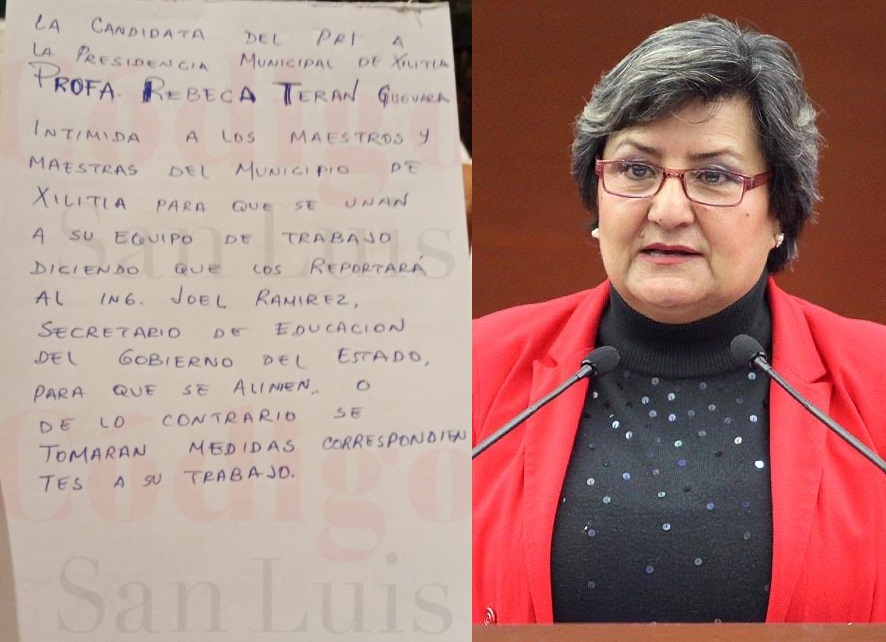 LA CANDIDATA DEL PRI A
LA PRESIDENCIA MUNICIPAL DE XILITLA
PROFA. REBECA TERAN GUEVARA
INTIMIDA A LOS MAESTROS Y
MAESTRAS DEL MUNICIPIO DE
XILITLA PARA QUE SE UNAN
A SU EQUIPO DE TRABAJO
DICIENDO QUE LOS REPORTARÁ
AL ING. JOEL RAMIREZ,
SECRETARIO DE EDUCACION
DEL GOBIERNO DEL ESTADO,
PARA QUE SE ALINEN, O
DE LO CONTRARIO SE
TOMARAN MEDIDAS CORRESPONDIEN
TES A SU TRABAJO.
Código
San Luis
Código
San Luis